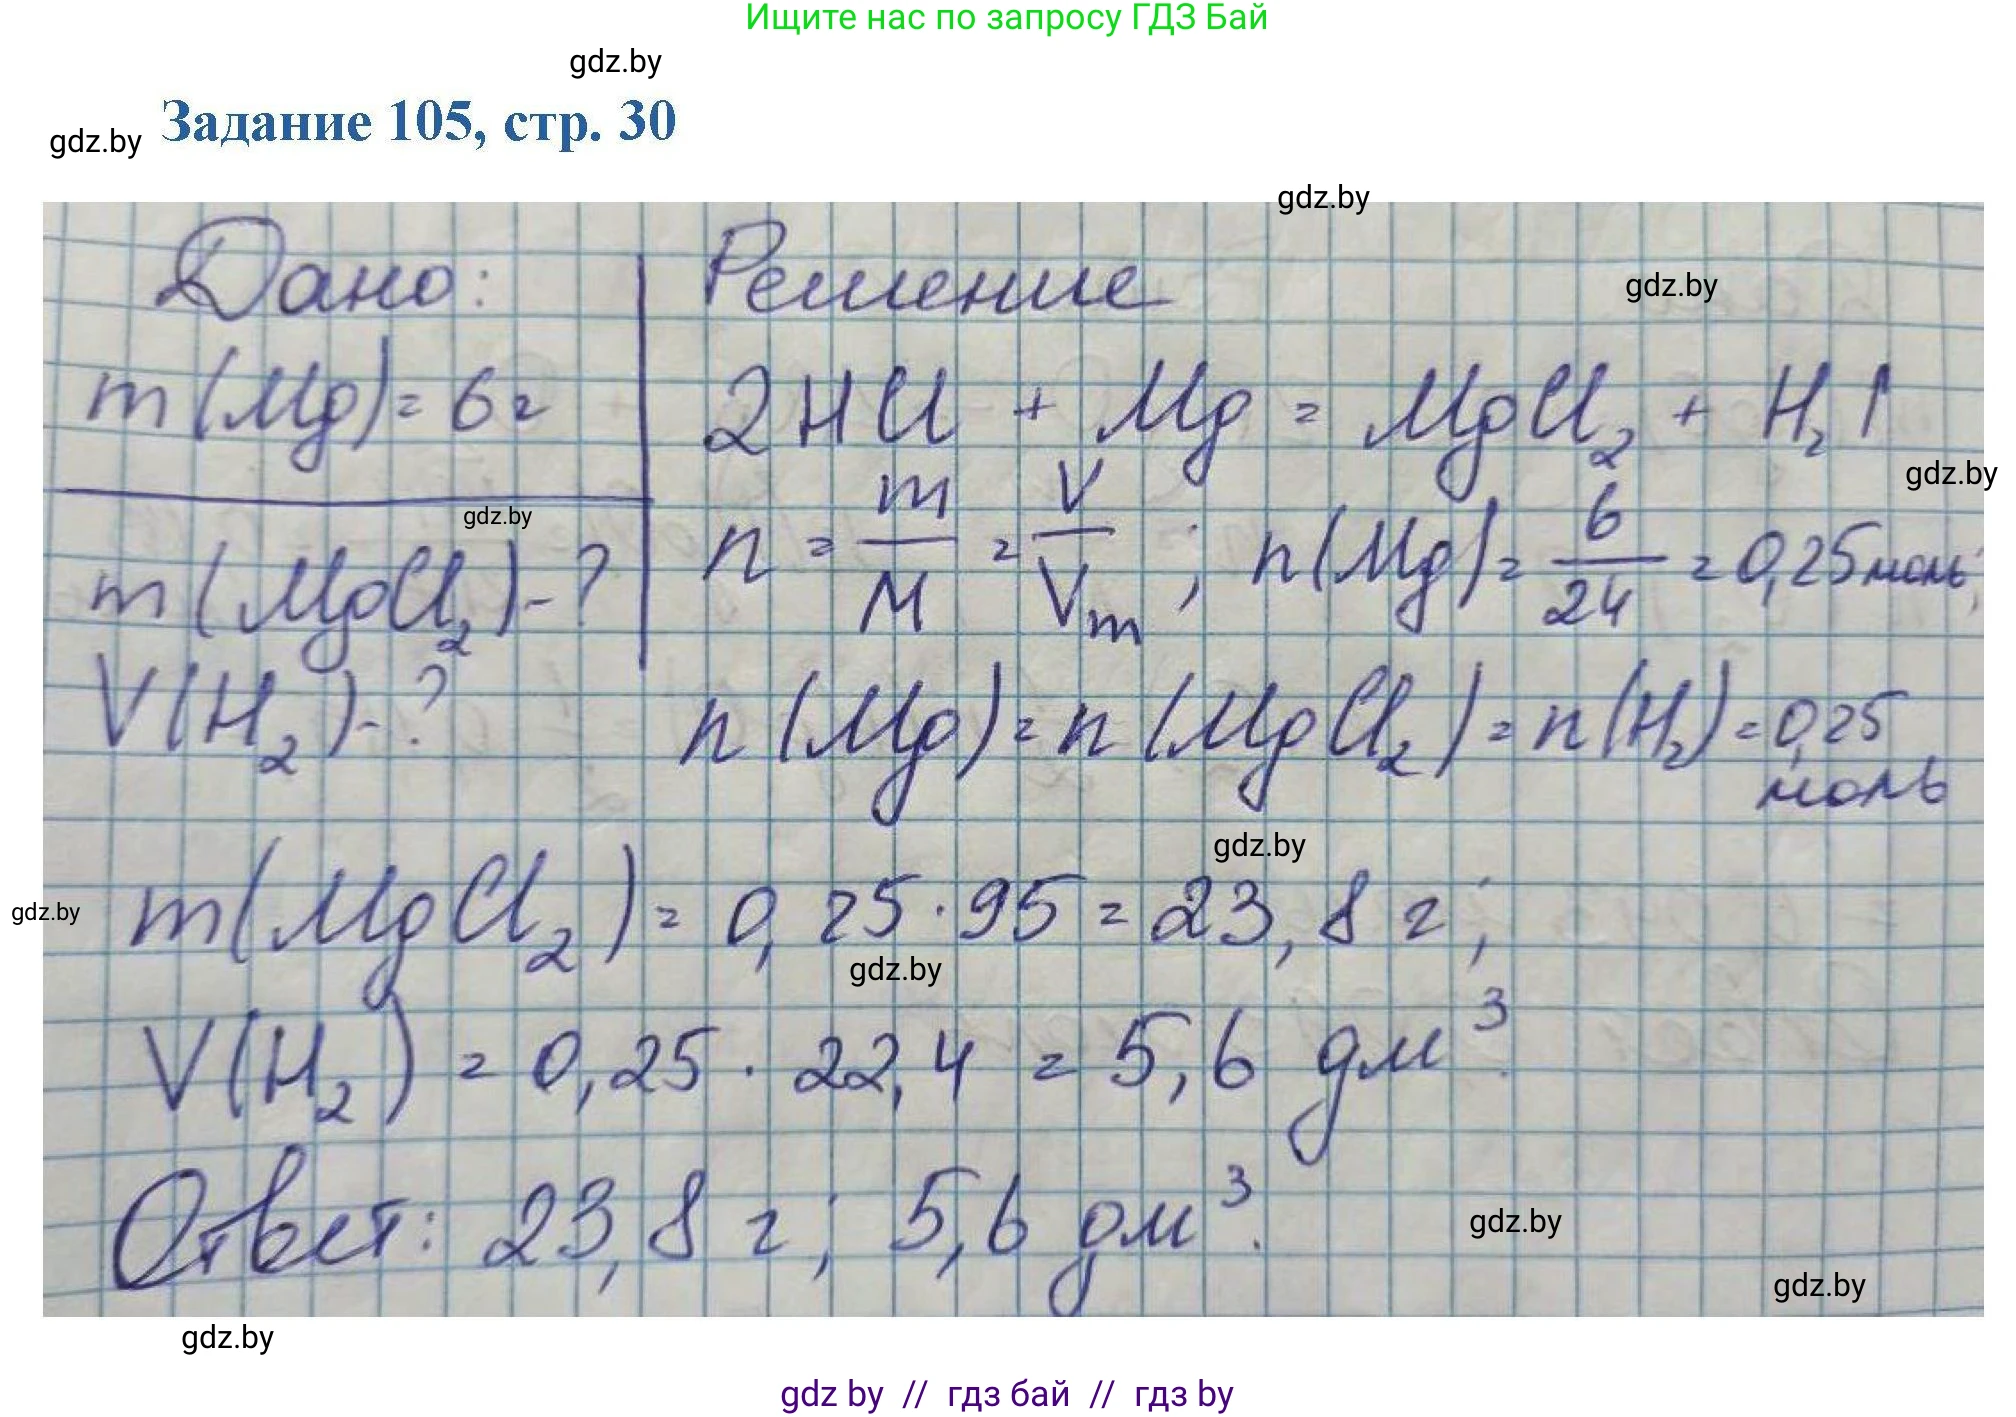 Ищите нас по запросу ГДЗ Бай
gdz.by
Задание 105, стр. 30
gdz.by
gdz.by
Дано:
Решение
gdz.by
m(Mg) = 6 г
2HCl + Mg = MgCl₂ + H₂↑
gdz.by
gdz.by
n = m/M = V/Vm ; n(Mg) = 6/24 = 0,25 моль;
m(MgCl₂) - ?
V(H₂) - ?
n(Mg) = n(MgCl₂) = n(H₂) = 0,25
моль
gdz.by
m(MgCl₂) = 0,25 · 95 = 23,8 г;
gdz.by
gdz.by
V(H₂) = 0,25 · 22,4 = 5,6 дм³.
Ответ: 23,8 г; 5,6 дм³.
gdz.by
gdz.by
gdz.by
gdz by // гдз бай // гдз by